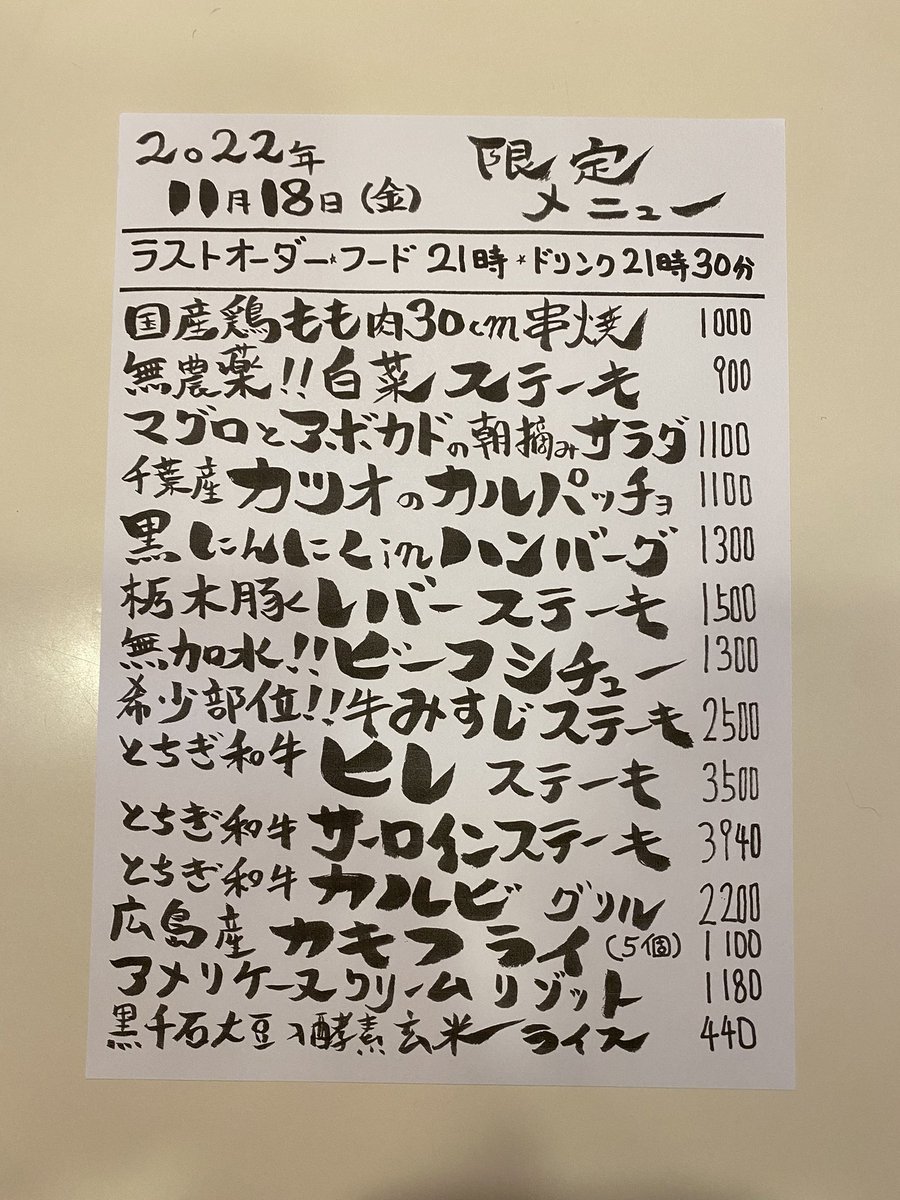 2022年 限定
11月18日(金) メニュー
ラストオーダー*フード 21時 *ドリンク21時30分
国産鶏もも肉30cm串焼 1000
無農薬!!白菜ステーキ 900
マグロとアボカドの朝摘みサラダ 1100
千葉産カツオのカルパッチョ 1100
黒にんにくinハンバーグ 1300
栃木豚レバーステーキ 1500
無加水!!ビーフシチュー 1300
希少部位!!牛みすじステーキ 2500
とちぎ和牛ヒレステーキ 3500
とちぎ和牛サーロインステーキ 3940
とちぎ和牛カルビグリル 2200
広島産カキフライ(5個) 1100
アメリケーヌクリームリゾット 1180
黒千石大豆入酵素玄米ライス 440